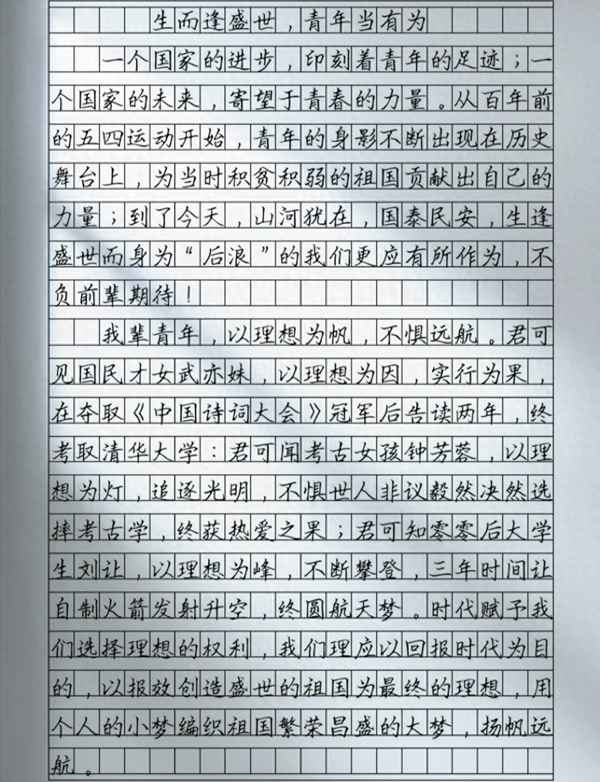 生而逢盛世，青年当有为
一个国家的进步，印刻着青年的足迹；一
个国家的未来，寄望于青春的力量。从百年前
的五四运动开始，青年的身影不断出现在历史
舞台上，为当时积贫积弱的祖国贡献出自己的
力量；到了今天，山河犹在，国泰民安，生逢
盛世而身为“后浪”的我们更应有所作为，不
负前辈期待！
我辈青年，以理想为帆，不惧远航。君可
见国民才女武亦妹，以理想为因，实行为果，
在夺取《中国诗词大会》冠军后告读两年，终
考取清华大学：君可闻考古女孩钟芳蓉，以理
想为灯，追逐光明，不惧世人非议毅然决然选
择考古学，终获热爱之果；君可知零零后大学
生刘让，以理想为峰，不断攀登，三年时间让
自制火箭发射升空，终圆航天梦。时代赋予我
们选择理想的权利，我们理应以回报时代为目
的，以报放创造盛世的祖国为最终的理想，用
个人的小梦编织祖国繁荣昌盛的大梦，扬帆远
航。